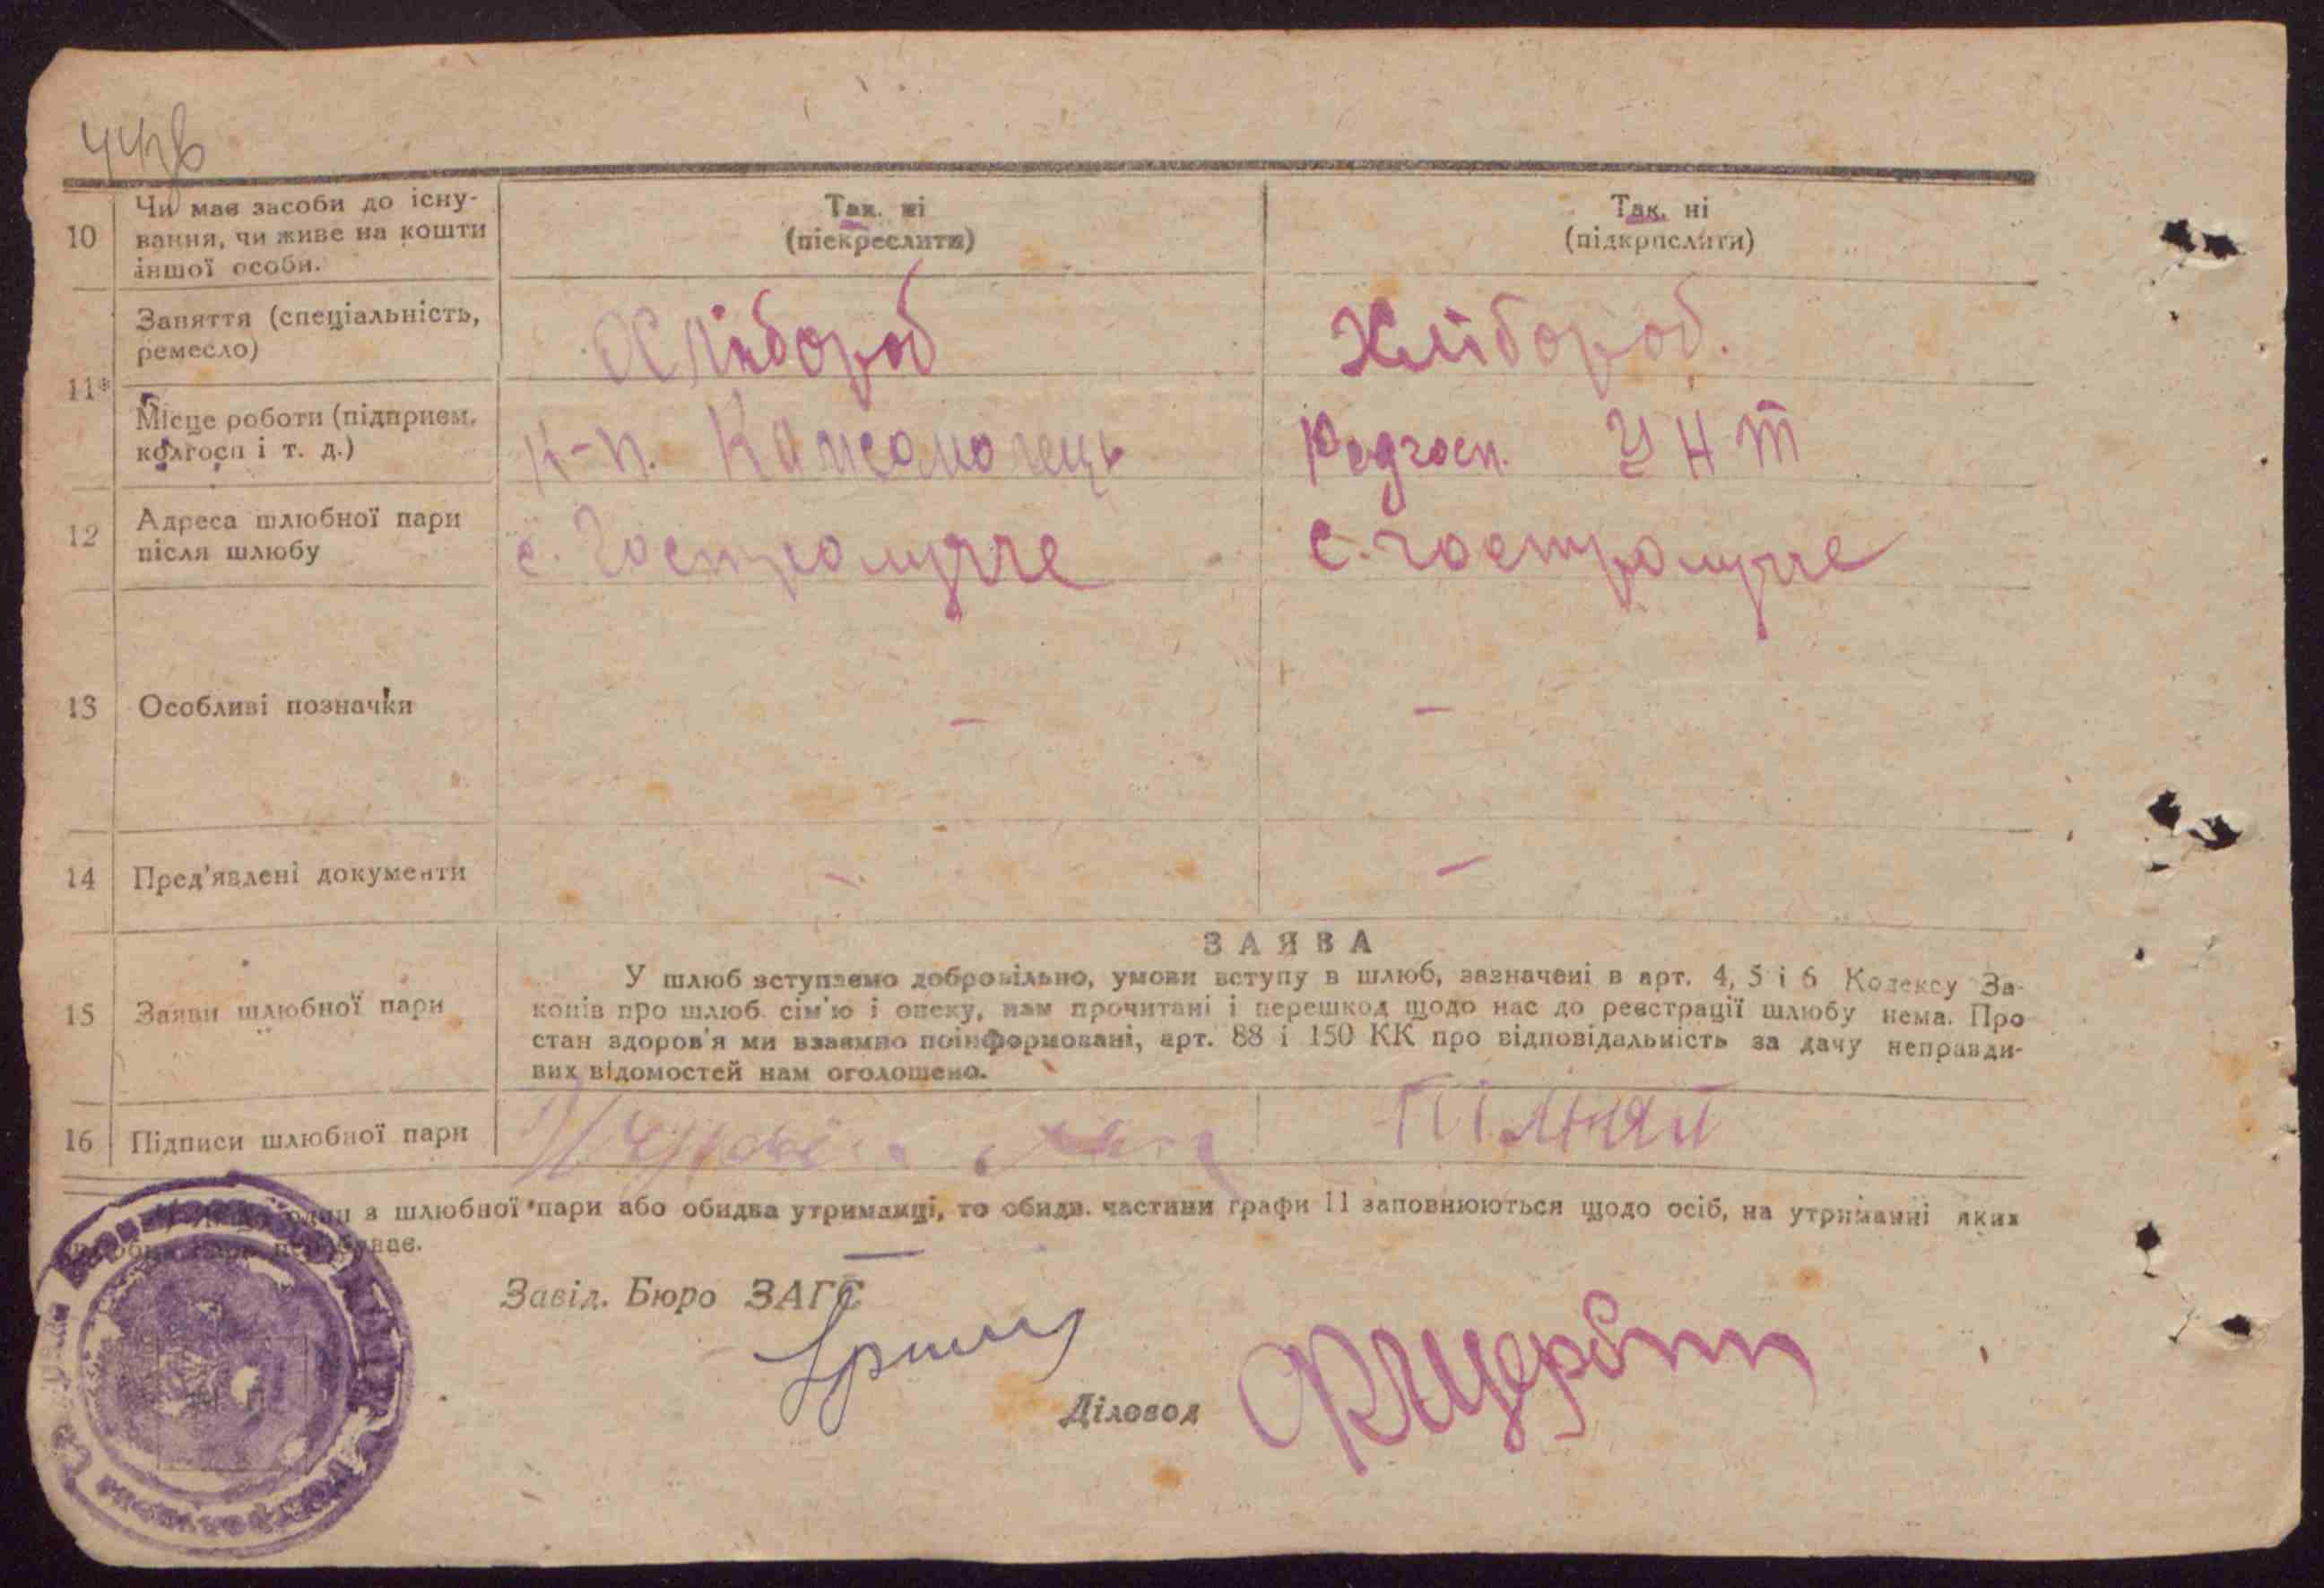 10 Чи має засоби до існу-
вання, чи живе на кошти
іншої особи.
Так. ні
(піекреслити)
Так. ні
(підкрпслити)
11* Заняття (спеціальність,
ремесло)
Хлібороб
Хлібороб.
Місце роботи (підприєм.
колгосп і т. д.)
к-п.
Радгосп.
12 Адреса шлюбної пари
після шлюбу
с. Гостролучче
с. гостролучче
13 Особливі позначки
–
–
14 Пред'явлені документи
–
–
15 Заяви шлюбної пари
ЗАЯВА
У шлюб вступаємо добровільно, умови вступу в шлюб, зазначені в арт. 4, 5 і 6 Кодексу За-
конів про шлюб. сім'ю і опеку, нам прочитані і перешкод щодо нас до реєстрації шлюбу нема. Про
стан здоров'я ми взаємно поінформовані, арт. 88 і 150 КК про відповідальність за дачу неправди-
вих відомостей нам оголошено.
16 Підписи шлюбної пари
один з шлюбної пари або обидва утриманці, то обидв. частини графи 11 заповнюються щодо осіб, на утриманні яких
Завід. Бюро ЗАГС
Діловод